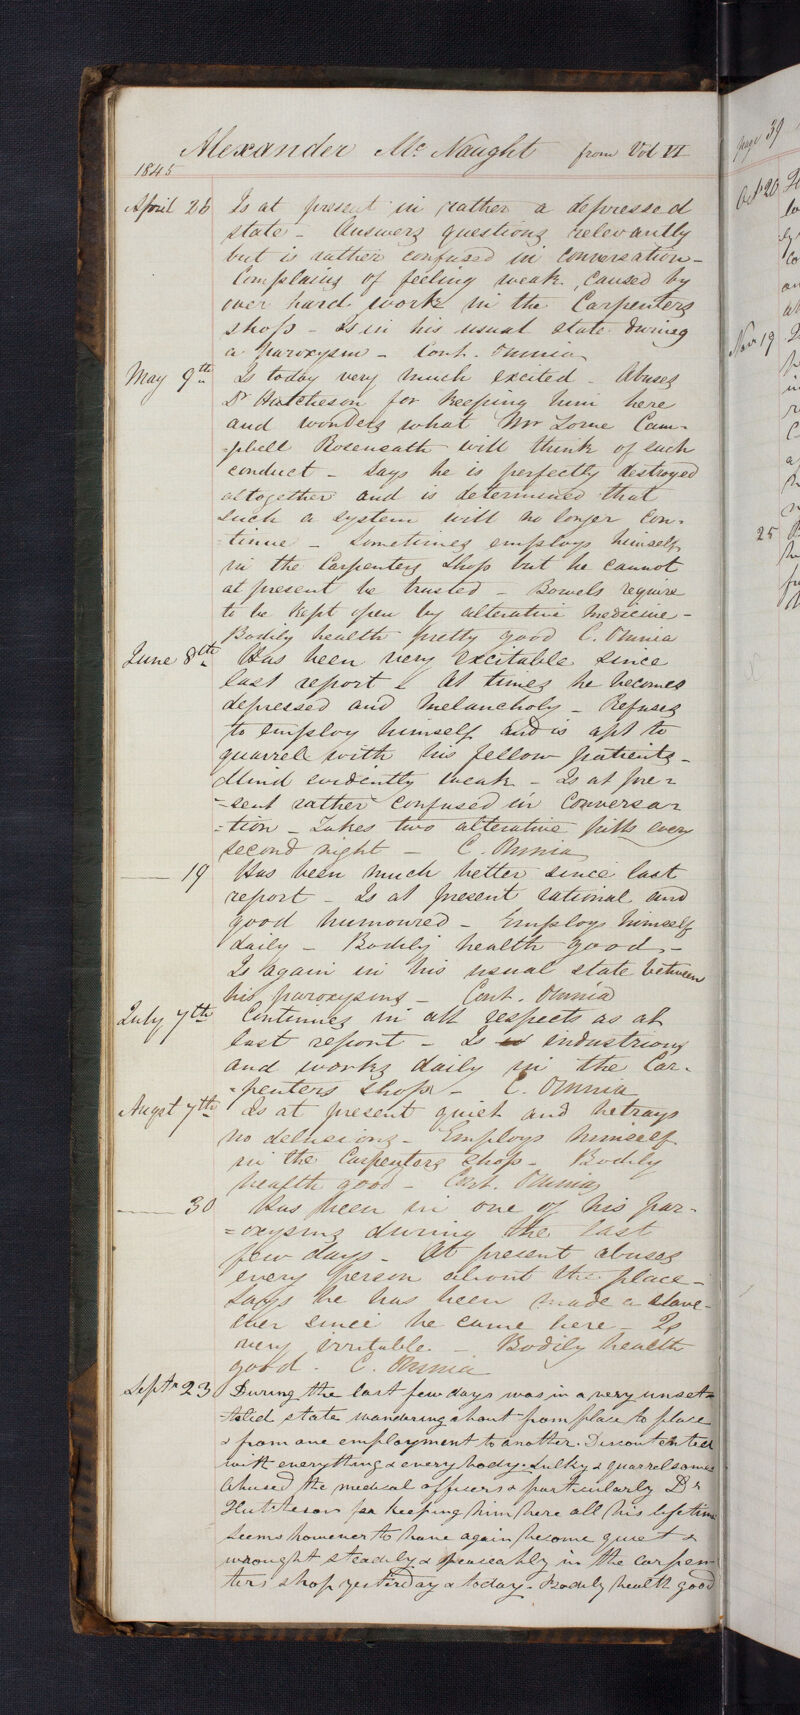 Alexander Mc Naught from Vol VI
1845
April 26 Is at present in rather a depressed
state - Answers questions relevantly
but is rather confused in conversation -
Complains of feeling weak, caused by
over hard work in the Carpenters
shop - Is in his usual state during
a paroxysm - Cont. Omnia
May 9th Is today very much excited - Abuses
Dr Hutcheson for keeping him here
and wonders what Mr Lorne Cam-
-pbell Roseneath will think of such
conduct - Says he is perfectly destroyed
altogether and is determined that
such a system will no longer con-
-tinue - Sometimes employs himself
in the Carpenters Shop but he cannot
at present be trusted - Bowels require
to be kept open by alterative medicine -
Bodily health pretty good C. Omnia
June 8th Has been very excitable since
last report - At times he becomes
depressed and melancholy - Refuses
to employ himself and is apt to
quarrel with his fellow patients -
Mind evidently weak - Is at pre-
-sent rather confused in conversa-
-tion - Takes two alterative pills every
second night - C. Omnia
—— 19 Has been much better since last
report - Is at present rational and
good humoured - Employs himself
daily - Bodily health good -
Is again in his usual state between
his paroxysms - Cont. Omnia
July 7th Continues in all respects as at
last report - Is industrious
and works daily in the Car-
-penters shop - C. Omnia
Augst 7th Is at present quiet and betrays
no delusions - Employs himself
in the Carpenters shop - Bodily
health good - Cont. Omnia
—— 30 Has been in one of his par-
-oxysms during the last
few days - At present abuses
every person about the place -
Says he has been made a slave
ever since he came here - Is
very irritable. - Bodily health
good. C. Omnia
Septr 23 During the last few days was in a very unset-
-tled state wandering about from place to place
& from one employment to another. Discontented
with everything & every body. Sulky & quarrelsome
Abused the medical officers & particularly Dr
Hutcheson for keeping him here all his lifetime
Seems however to have again become quiet &
wrought steadily & peaceably in the carpen-
ters shop yesterday & today. Bodily health good
page 39
Oct 20
Nov 19
25